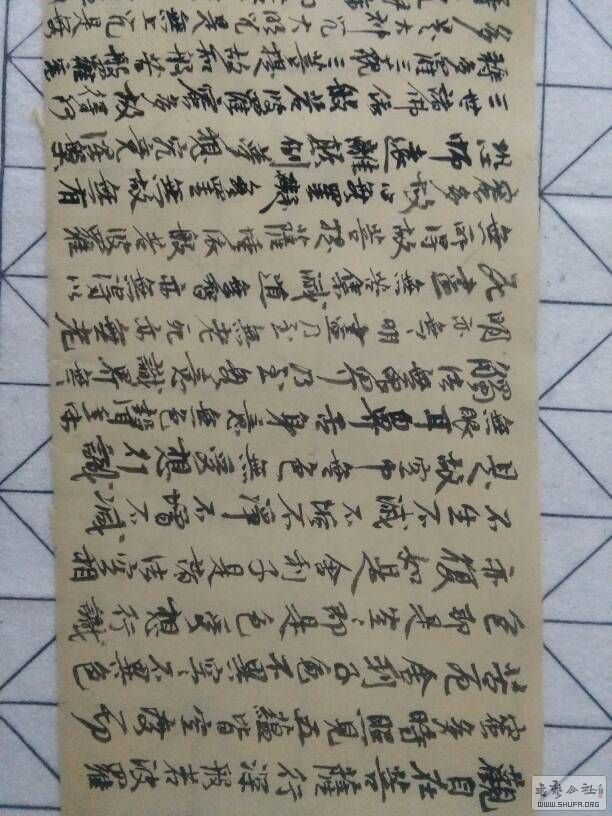 觀自在菩薩行深般若波羅
蜜多時照見五蘊皆空度一切
苦厄舍利子色不異空空不異色
色即是空空即是色受想行識
亦復如是舍利子是諸法空相
不生不滅不垢不淨不增不減
是故空中無色無受想行識
無眼耳鼻舌身意無色聲香味
觸法無眼界乃至無意識界無
明亦無無明盡乃至無老死亦無老
死盡無苦集滅道無智亦無得以
無所得故菩提薩埵依般若波羅
蜜多故心無罣礙無罣礙故無有
恐怖遠離顛倒夢想究竟涅槃
三世諸佛依般若波羅蜜多故得阿
耨多羅三藐三菩提故知般若波羅蜜
多是大神咒是大明咒是無上咒是無
WWW.SHUFA.ORG